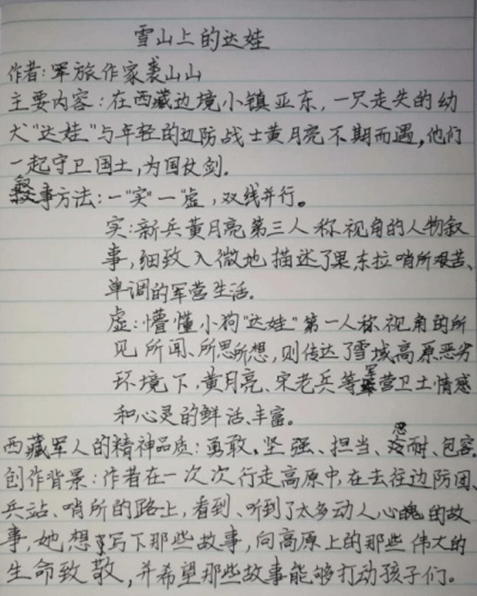 雪山上的达娃
作者:军旅作家裘山山
主要内容:在西藏边境小镇亚东,一只走失的幼
犬"达娃"与年轻的边防战士黄月亮不期而遇,他们
一起守卫国土,为国仗剑.
叙事方法:一"实"一"虚",双线并行。
实:新兵黄月亮第三人称视角的人物叙
事,细致入微地描述了果东拉哨所艰苦、
单调的军营生活.
虚:懵懂小狗"达娃"第一人称视角的所
见所闻、所思所想,则传达了雪域高原恶劣
环境下,黄月亮、宋老兵等军营卫士情感
和心灵的鲜活、丰富。
西藏军人的精神品质:勇敢、坚强、担当、忍耐、包容.
创作背景:作者在一次次行走高原中,在去往边防团、
兵站、哨所的路上,看到、听到了太多动人心魄的故
事,她想写下那些故事,向高原上的那些伟大的
生命致敬,并希望那些故事能够打动孩子们。